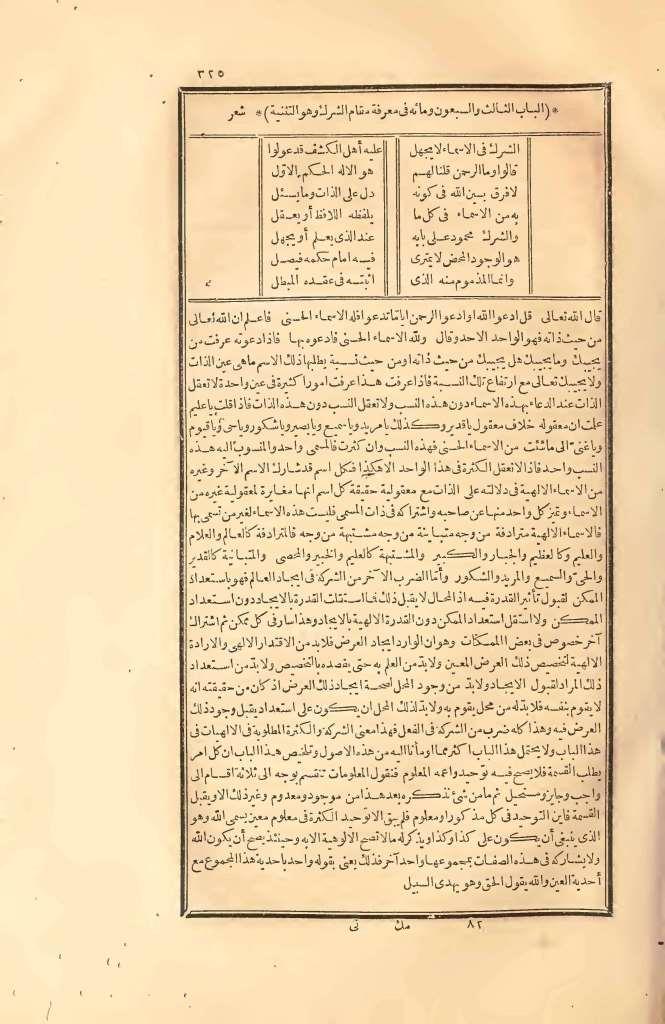 ٣٢٥
*(الباب الثالث والسبعون ومائه فى معرفة مقام الشرك وهو التثنية)* شعر
الشرك فى الاسماء لا يجهل عليه أهل الكشف قد عولوا
قالوا وما الرحمن قلنا لهم هو الاله الحكم الاول
لا فرق بين الله فى كونه دل على الذات وما يسئل
به من الاسماء فى كل ما يلفظه اللافظ أو يعقل
والشرك محمود على بابه عند الذى يعلم أو يجهل
هو الوجود المحض لا يمترى فيه امام حكمه فيصل
وانما المذموم منه الذى اثبته فى عقده المبطل
قال الله تعالى قل ادعوا الله او ادعوا الرحمن اياما تدعوا فله الاسماء الحسنى فاعلم ان الله تعالى
من حيث ذاته فهو الواحد الاحد وقال ولله الاسماء الحسنى فادعوه بها فاذا دعوته عرفت من
يجيبك وما يجيبك هل يجيبك من حيث ذاته او من حيث نسبة يطلبها ذلك الاسم ما هى عين الذات
ولا يجيبك تعالى مع ارتفاع تلك النسبة فاذا عرفت هذا عرفت امورا كثيرة فى عين واحدة لا تعقل
الذات عند الدعاء بهذه الاسماء دون هذه النسب ولا تعقل النسب دون هذه الذات فاذا قلت يا عليم
علمت ان معقوله خلاف معقول يا قدير وكذلك يا مريد ويا سميع ويا بصير ويا شكور ويا حى ويا قيوم
ويا غنى الى ما شئت من الاسماء الحسنى فهذه النسب وان كثرت فالمسمى واحد والمنسوب اليه هذه
النسب واحد فاذا لا تعقل الكثرة فى هذا الواحد الا هكذا فكل اسم قد شارك الاسم الآخر وغيره
من الاسماء الالهية فى دلالته على الذات مع معقولية حقيقة كل اسم انها مغايرة لمعقولية غيره من
الاسماء وتميز كل واحد منها عن صاحبه واشتراكه فى ذات المسمى فليست هذه الاسماء لغير من تسمى بها
فالاسماء الالهية مترادفة من وجه متباينة من وجه مشتبهة من وجه فالمترادفة كالعالم والعلام
والعليم وكالعظيم والجبار والكبير والمشتبهة كالعليم والخبير والمحصى والمتباينة كالقدير
والحى والسميع والمريد والشكور وأما الضرب الآخر من الشركة فى ايجاد العالم فهو باستعداد
الممكن لقبول تأثير القدرة فيه اذ المحال لا يقبل ذلك فما استقلت القدرة بالايجاد دون استعداد
الممكن ولا استقل استعداد الممكن دون القدرة الالهية بالايجاد وهذا سار فى كل ممكن ثم اشتراك
آخر خصوص فى بعض الممكنات وهو ان الوارد ايجاد العرض فلابد من الاقتدار الالهى والارادة
الالهية لتخصيص ذلك العرض المعين ولابد من العلم به حتى يقصده بالتخصيص ولابد من استعداد
ذلك المراد لقبول الايجاد ولابد من وجود المحل لصحة ايجاد ذلك العرض اذ كان من حقيقته انه
لا يقوم بنفسه فلابد له من محل يقوم به ولابد لذلك المحل ان يكون على استعداد يقبل وجود ذلك
العرض فيه وهذا كله ضرب من الشركة فى الفعل فهذا معنى الشركة والكثرة المطلوبة فى الالهيات فى
هذا الباب ولا يحتمل هذا الباب اكثر مما اومأنا اليه من هذه الاصول وتلخيص هذا الباب ان كل امر
يطلب القسمة فلا يصح فيه توحيد واعمه المعلوم فنقول المعلومات تنقسم بوجه الى ثلاثة اقسام الى
واجب وجايز ومستحيل ثم ما من شئ نذكره بعد هذا من موجود ومعدوم وغير ذلك الا ويقبل
القسمة فاين التوحيد فى كل مذكور او معلوم فلم يبق الا توحيد الكثرة فى معلوم معين يسمى الله وهو
الذى ينبغى أن يكون على كذا وكذا ويذكر له ما لا تصح الالوهية الا به وحينئذ يصح أن يكون الله
ولا يشاركه فى هذه الصفات بمجموعها واحد آخر فذلك يعنى بقوله واحد باحدية هذا المجموع مع
أحدية العين والله يقول الحق وهو يهدى السبيل
٨٢ مك نى